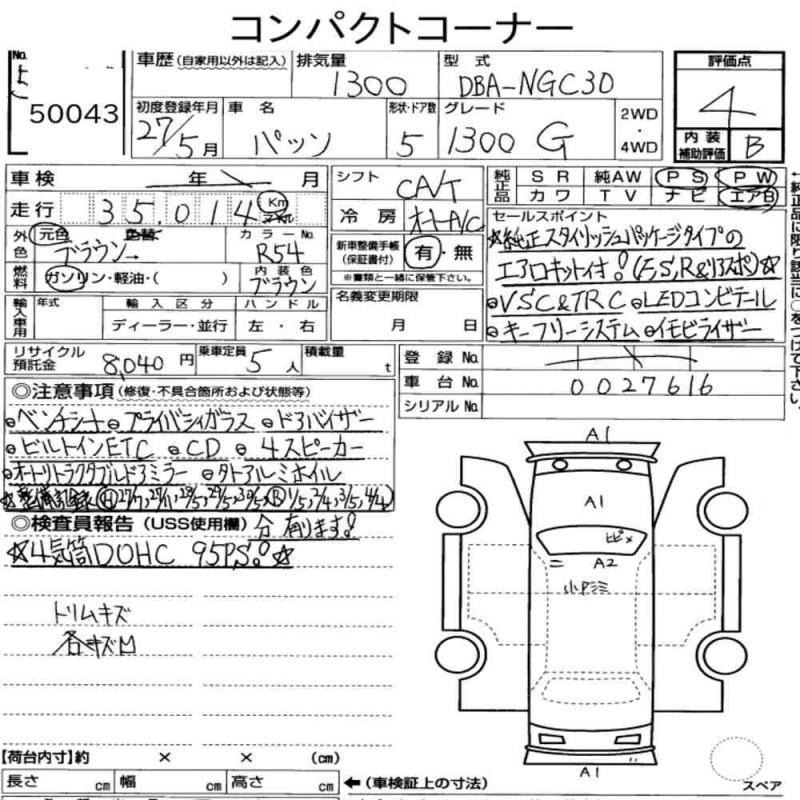 コンパクトコーナー
No.
50043
車歴 (自家用以外は記入)
排気量
1300
型式
DBA-NGC30
評価点
4
初度登録年月
27/5月
車名
パッソ
形状・ドア数
5
グレード
1300 G
2WD
・
4WD
内装
補助評価
B
車検 年 月
走行 35,014 Km
マイル
外色
元色 色替
ブラウン
カラーNo.
R54
燃料
ガソリン・軽油・( )
内装色
ブラウン
輸入車用
年式
輸入区分
ハンドル
ディーラー・並行
左・右
シフト
CA/T
冷房
オートA/C
新車整備手帳
(保証書付)
有・無
※書類と一緒に保管下さい。
名義変更期限
月 日
純正品
SR 純AW PS PW
カワ TV ナビ エアB
セールスポイント
☆純正スタイリッシュパッケージタイプの
エアロキット付き!(F,S,R&リアスポ)☆
●VSC&TRC ●LEDコンビテール
●キーフリーシステム ●イモビライザー
リサイクル
預託金
8,040円
乗車定員
5人
積載量
t
登録No.
車台No.
0027616
シリアルNo.
◎注意事項(修復・不具合箇所および状態等)
●ベンチシート ●プライバシィガラス ●ドアバイザー
●ビルトインETC ●CD ●4スピーカー
●オートリトラクタブルドアミラー ●タトアルミホイル
☆整備記録
分有ります!
◎検査員報告(USS使用欄)
☆4気筒DOHC 95PS!☆
トリムキズ
各キズ凹
A1
A1
ヒビメ
A2
小Pミミ
A1
スペア
【荷台内寸】約 × × (cm)
長さ cm 幅 cm 高さ cm
←(車検証上の寸法)